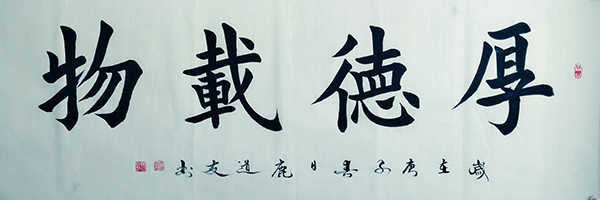 厚德載物
歲在庚子春日鹿道友书